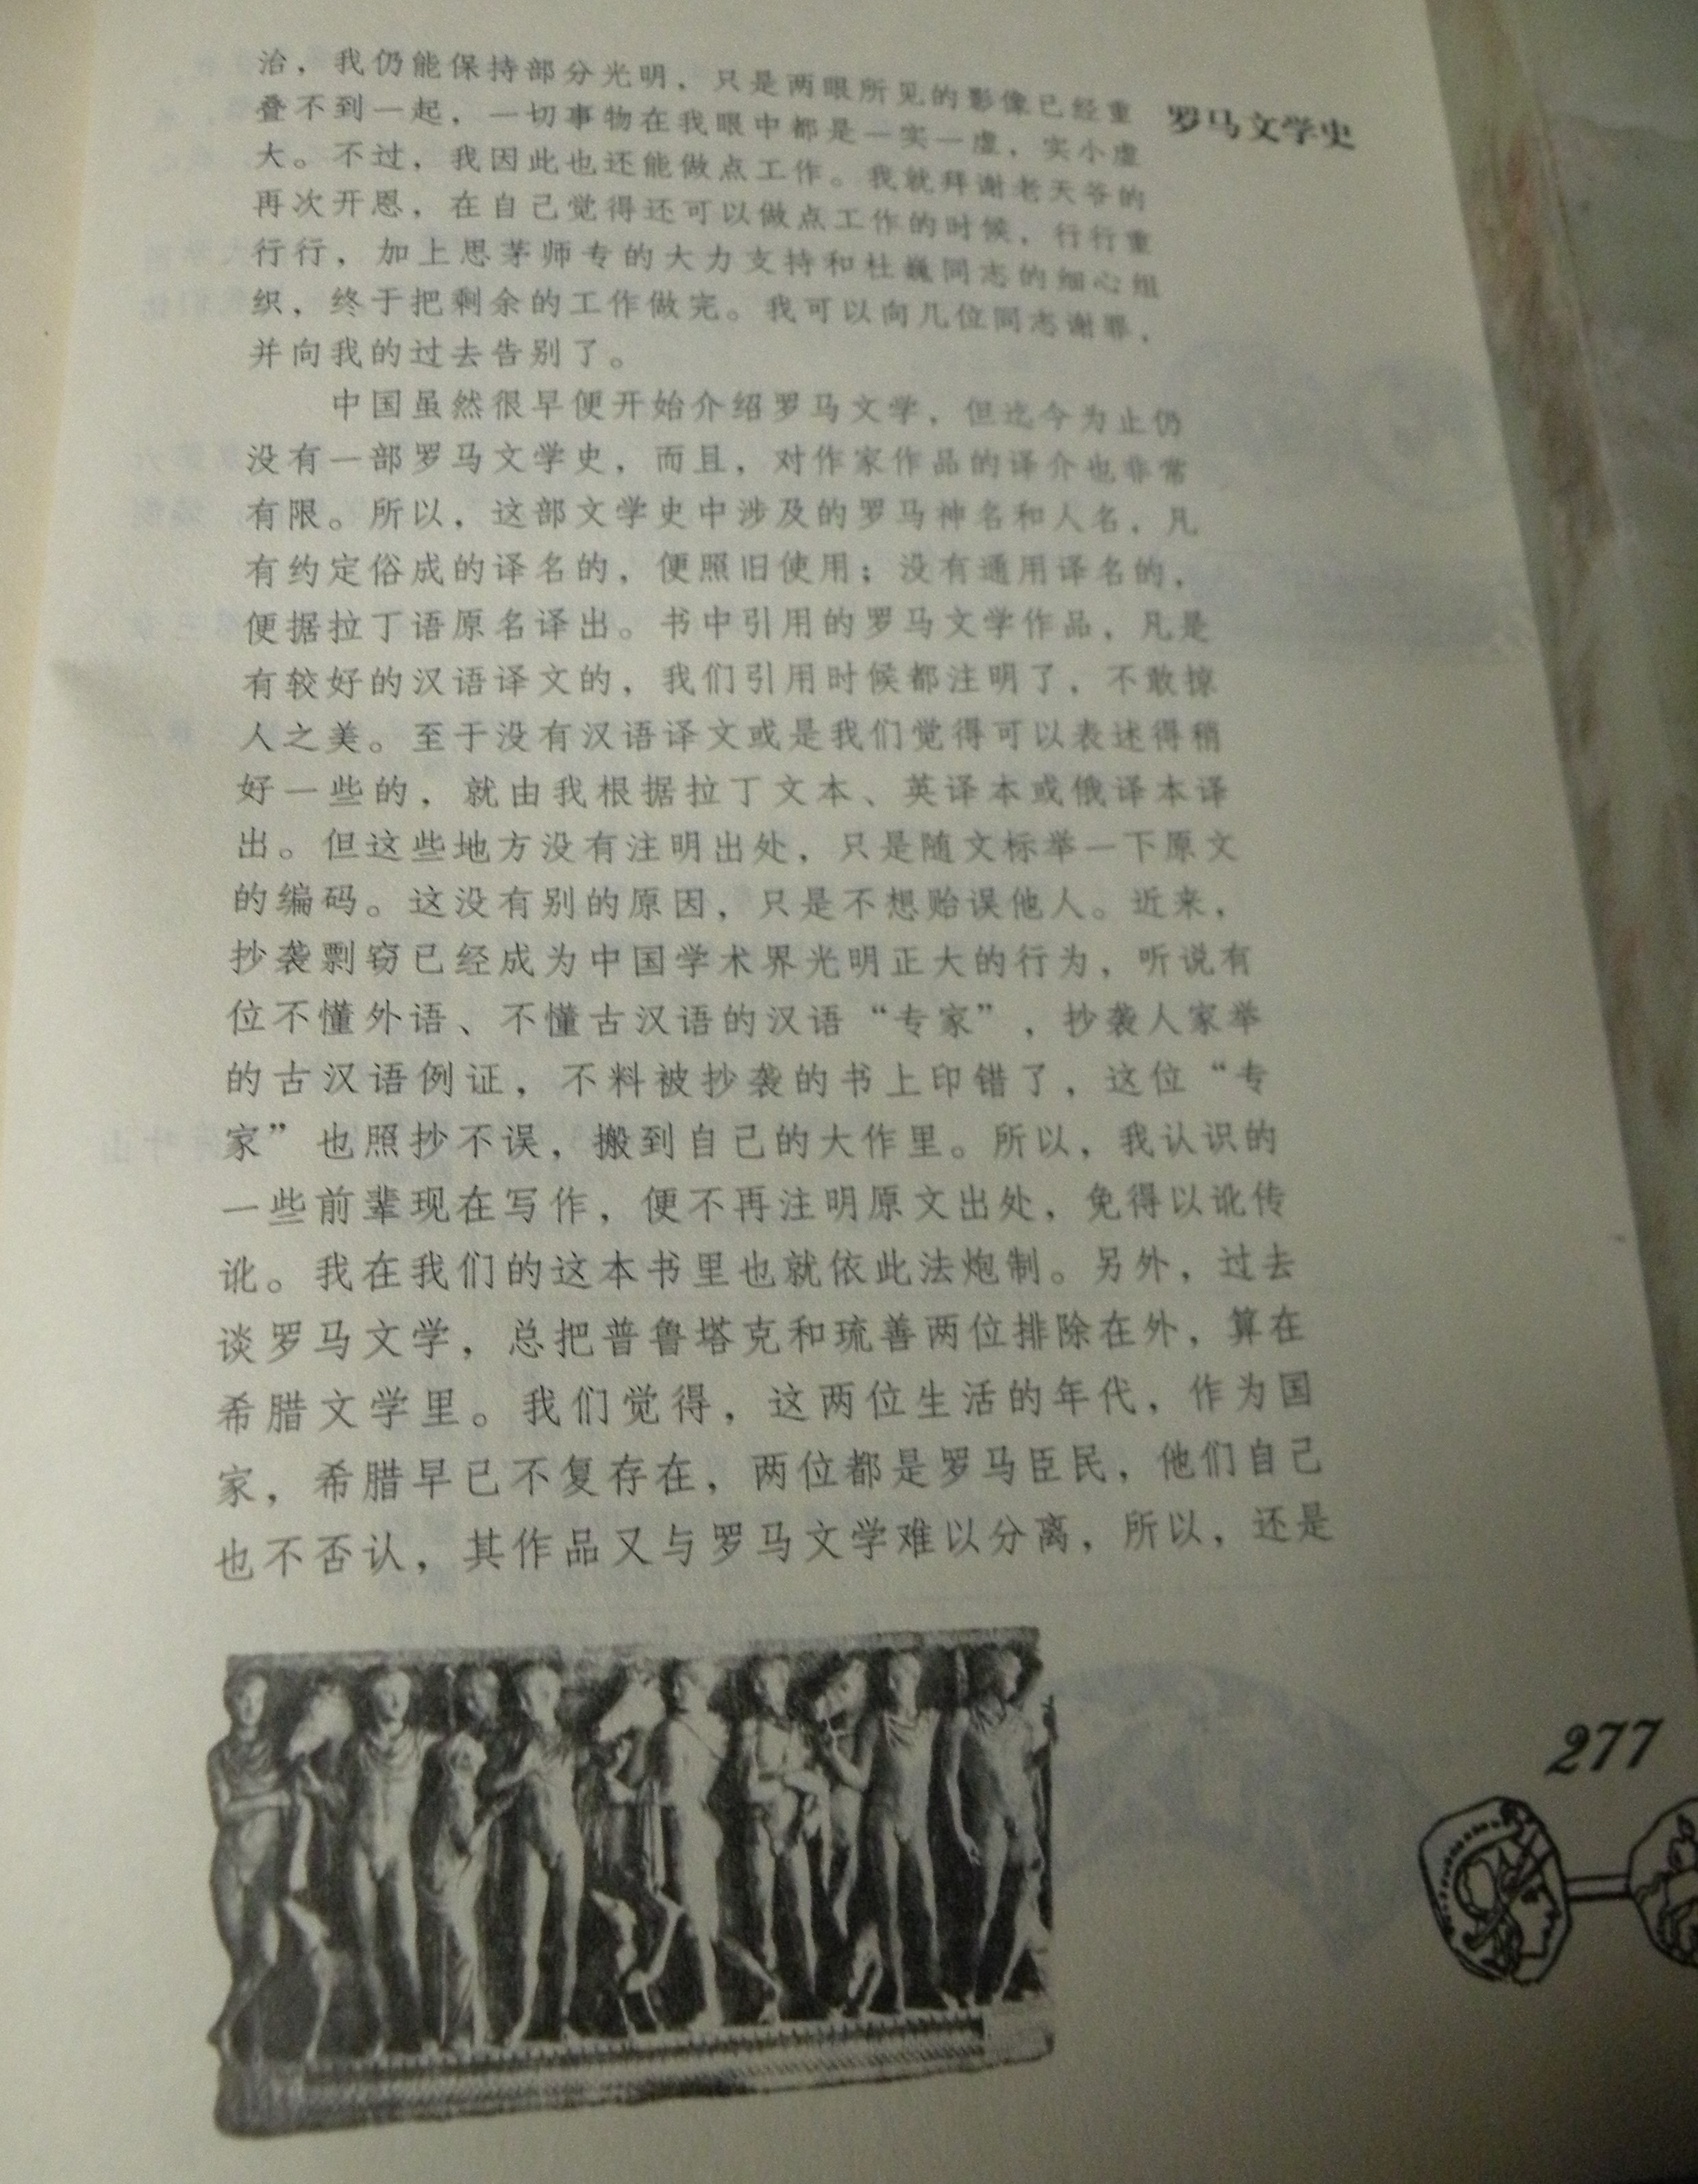 罗马文学史
治，我仍能保持部分光明，只是两眼所见的影像已经重
叠不到一起，一切事物在我眼中都是一实一虚，实小虚
大。不过，我因此也还能做点工作。我就拜谢老天爷的
再次开恩，在自己觉得还可以做点工作的时候，行行重
行行，加上思茅师专的大力支持和杜巍同志的细心组
织，终于把剩余的工作做完。我可以向几位同志谢罪，
并向我的过去告别了。
中国虽然很早便开始介绍罗马文学，但迄今为止仍
没有一部罗马文学史，而且，对作家作品的译介也非常
有限。所以，这部文学史中涉及的罗马神名和人名，凡
有约定俗成的译名的，便照旧使用；没有通用译名的，
便据拉丁语原名译出。书中引用的罗马文学作品，凡是
有较好的汉语译文的，我们引用时候都注明了，不敢掠
人之美。至于没有汉语译文或是我们觉得可以表述得稍
好一些的，就由我根据拉丁文本、英译本或俄译本译
出。但这些地方没有注明出处，只是随文标举一下原文
的编码。这没有别的原因，只是不想贻误他人。近来，
抄袭剽窃已经成为中国学术界光明正大的行为，听说有
位不懂外语、不懂古汉语的汉语“专家”，抄袭人家举
的古汉语例证，不料被抄袭的书上印错了，这位“专
家”也照抄不误，搬到自己的大作里。所以，我认识的
一些前辈现在写作，便不再注明原文出处，免得以讹传
讹。我在我们的这本书里也就依此法炮制。另外，过去
谈罗马文学，总把普鲁塔克和琉善两位排除在外，算在
希腊文学里。我们觉得，这两位生活的年代，作为国
家，希腊早已不复存在，两位都是罗马臣民，他们自己
也不否认，其作品又与罗马文学难以分离，所以，还是
277